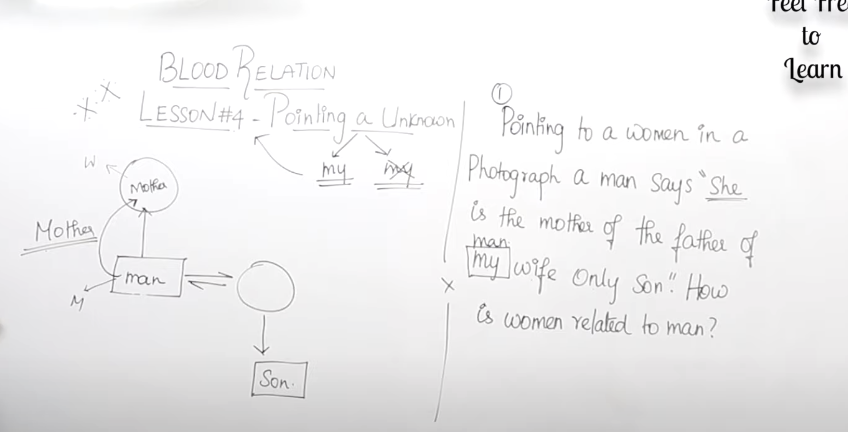 Feel Free
to
Learn
BLOOD RELATION
LESSON #4 - Pointing a Unknown
my my
W
Mother
Mother
man
M
Son.
①
Pointing to a women in a
Photograph a man says "She
is the mother of the father of
man
my wife Only Son." How
is women related to man?